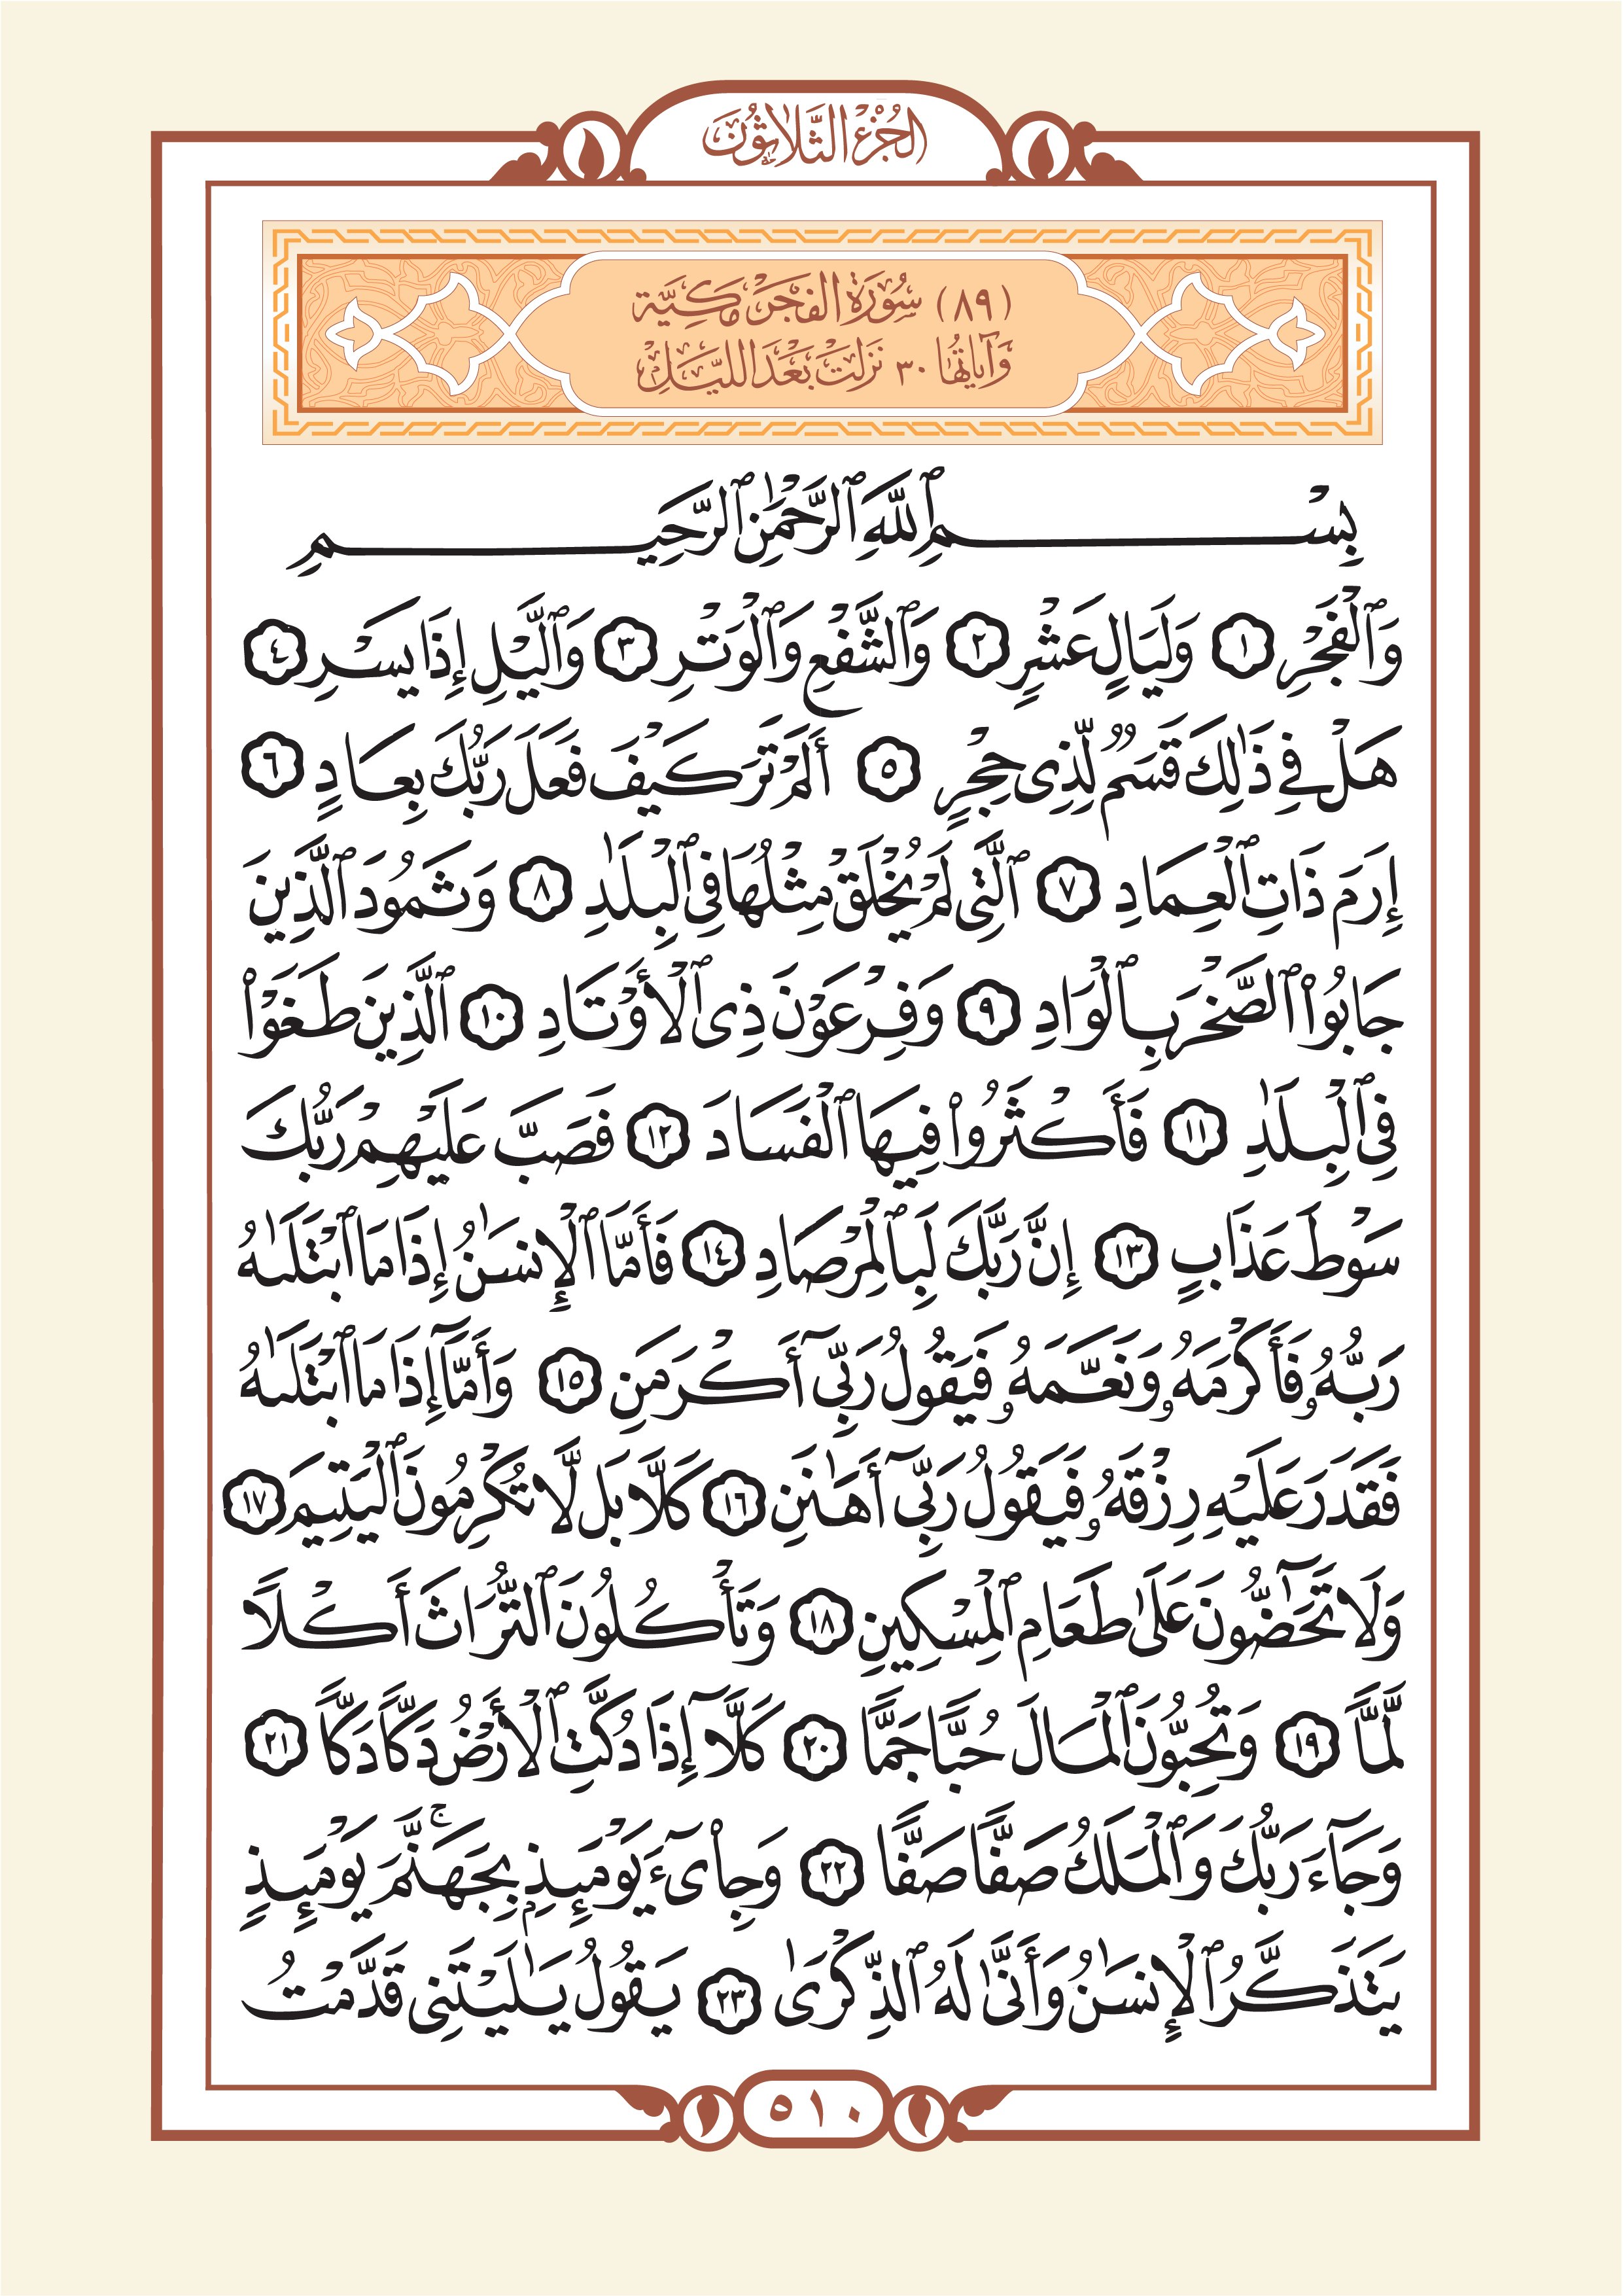 الجُزْءُ الثَّلَاثُونَ
(٨٩) سُورَةُ الفَجْرِ مَكِيَّة
وَآيَاتُهَا ٣٠ نَزَلَتْ بَعْدَ اللَّيْلِ
بِسْمِ ٱللَّهِ ٱلرَّحْمَٰنِ ٱلرَّحِيمِ
وَٱلْفَجْرِ ١ وَلَيَالٍ عَشْرٍ ٢ وَٱلشَّفْعِ وَٱلْوَتْرِ ٣ وَٱلَّيْلِ إِذَا يَسْرِ ٤
هَلْ فِى ذَٰلِكَ قَسَمٌ لِّذِى حِجْرٍ ٥ أَلَمْ تَرَ كَيْفَ فَعَلَ رَبُّكَ بِعَادٍ ٦
إِرَمَ ذَاتِ ٱلْعِمَادِ ٧ ٱلَّتِى لَمْ يُخْلَقْ مِثْلُهَا فِى ٱلْبِلَٰدِ ٨ وَثَمُودَ ٱلَّذِينَ
جَابُوا۟ ٱلصَّخْرَ بِٱلْوَادِ ٩ وَفِرْعَوْنَ ذِى ٱلْأَوْتَادِ ١٠ ٱلَّذِينَ طَغَوْا۟
فِى ٱلْبِلَٰدِ ١١ فَأَكْثَرُوا۟ فِيهَا ٱلْفَسَادَ ١٢ فَصَبَّ عَلَيْهِمْ رَبُّكَ
سَوْطَ عَذَابٍ ١٣ إِنَّ رَبَّكَ لَبِٱلْمِرْصَادِ ١٤ فَأَمَّا ٱلْإِنسَٰنُ إِذَا مَا ٱبْتَلَىٰهُ
رَبُّهُۥ فَأَكْرَمَهُۥ وَنَعَّمَهُۥ فَيَقُولُ رَبِّىٓ أَكْرَمَنِ ١٥ وَأَمَّآ إِذَا مَا ٱبْتَلَىٰهُ
فَقَدَرَ عَلَيْهِ رِزْقَهُۥ فَيَقُولُ رَبِّىٓ أَهَٰنَنِ ١٦ كَلَّا بَل لَّا تُكْرِمُونَ ٱلْيَتِيمَ ١٧
وَلَا تَحَٰٓضُّونَ عَلَىٰ طَعَامِ ٱلْمِسْكِينِ ١٨ وَتَأْكُلُونَ ٱلتُّرَاثَ أَكْلًا
لَّمًّا ١٩ وَتُحِبُّونَ ٱلْمَالَ حُبًّا جَمًّا ٢٠ كَلَّآ إِذَا دُكَّتِ ٱلْأَرْضُ دَكًّا دَكًّا ٢١
وَجَآءَ رَبُّكَ وَٱلْمَلَكُ صَفًّا صَفًّا ٢٢ وَجِا۟ىٓءَ يَوْمَئِذٍۭ بِجَهَنَّمَ ۚ يَوْمَئِذٍ
يَتَذَكَّرُ ٱلْإِنسَٰنُ وَأَنَّىٰ لَهُ ٱلذِّكْرَىٰ ٢٣ يَقُولُ يَٰلَيْتَنِى قَدَّمْتُ
٥١٠